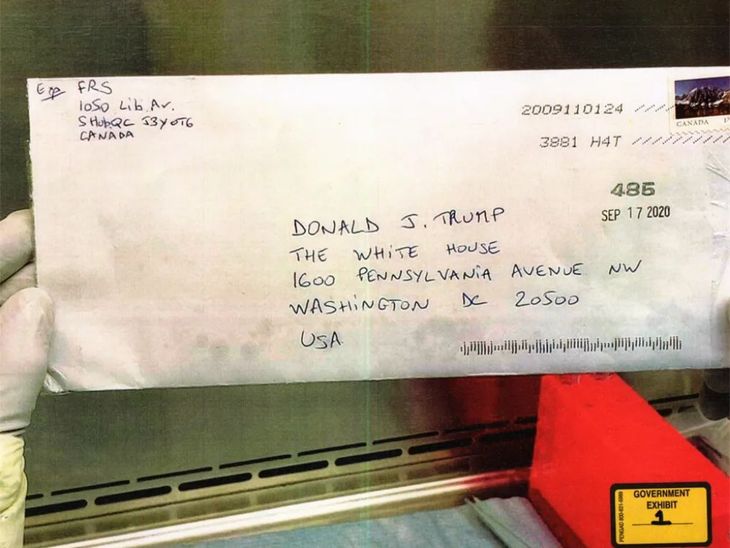 Exp FRS
1050 Lib. Av.
CANADA
2009110124
3881 H4T
CANADA
485
SEP 17 2020
DONALD J. TRUMP
THE WHITE HOUSE
1600 PENNSYLVANIA AVENUE NW
WASHINGTON DC 20500
USA
GOVERNMENT
EXHIBIT
1